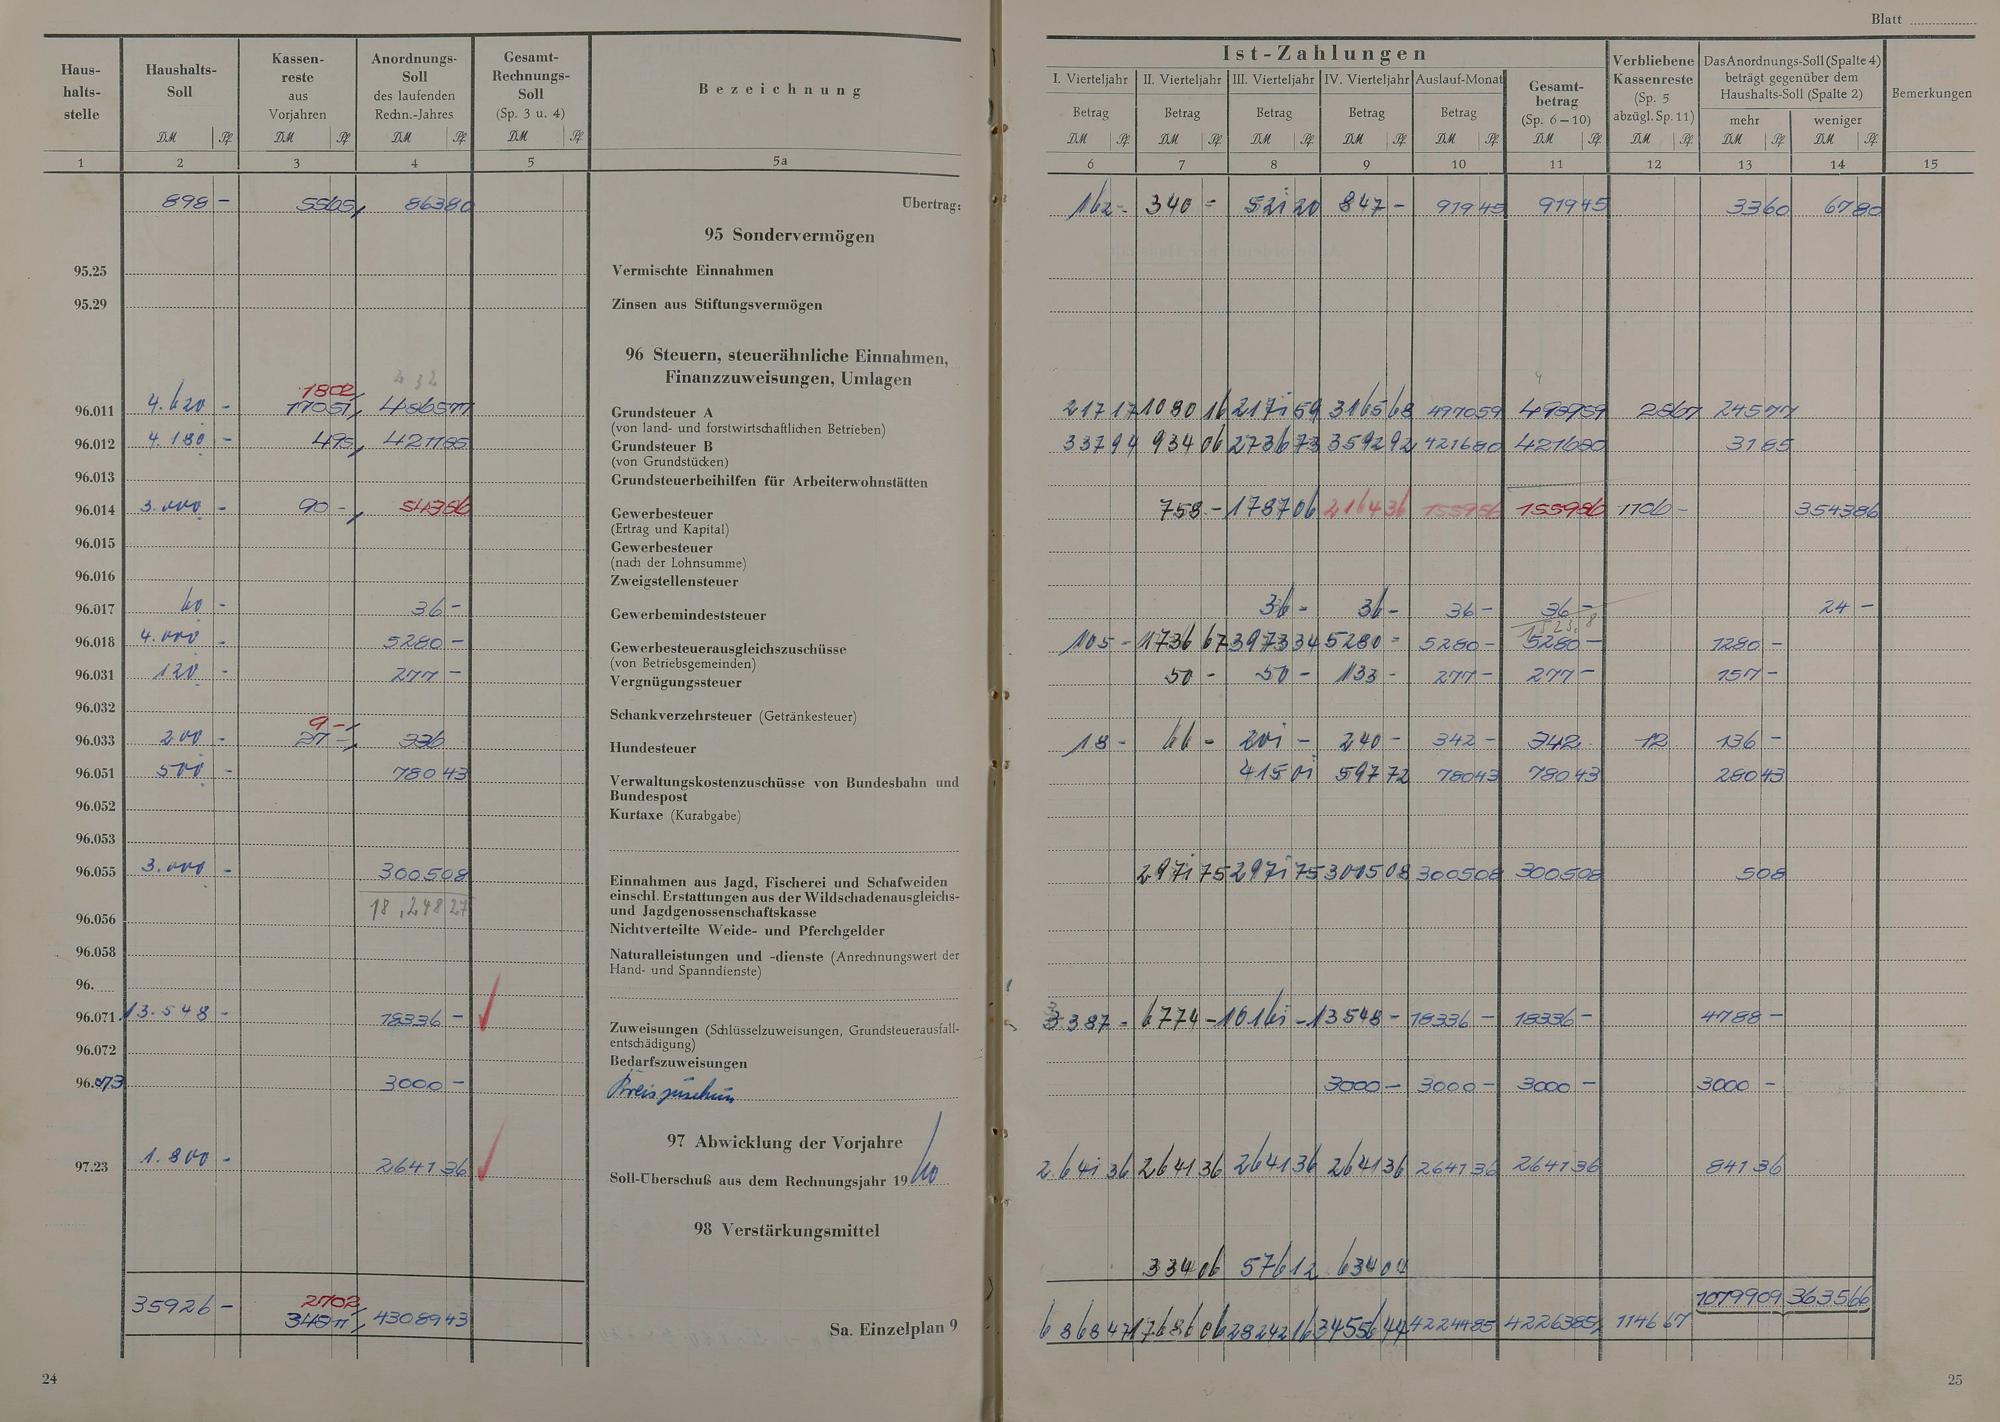 Blatt
Haus-
halts-
stelle
Haushalts-
Soll
Kassen-
reste
aus
Vorjahren
Anordnungs-
Soll
des laufenden
Rechn.-Jahres
Gesamt-
Rechnungs-
Soll
(Sp. 3 u. 4)
Bezeichnung
DM Pf DM Pf DM Pf DM Pf
1 2 3 4 5 5a
898 - 5565 86380 Übertrag:
95 Sondervermögen
95.25 Vermischte Einnahmen
95.29 Zinsen aus Stiftungsvermögen
96 Steuern, steuerähnliche Einnahmen,
Finanzzuweisungen, Umlagen
1802
96.011 4.620 - 17051 486577 Grundsteuer A
(von land- und forstwirtschaftlichen Betrieben)
96.012 4.180 - 495 421185 Grundsteuer B
(von Grundstücken)
96.013 Grundsteuerbeihilfen für Arbeiterwohnstätten
96.014 3.000 - 90 - 54386 Gewerbesteuer
(Ertrag und Kapital)
96.015 Gewerbesteuer
(nach der Lohnsumme)
96.016 Zweigstellensteuer
96.017 60 - 36 - Gewerbemindeststeuer
96.018 4.000 - 5280 - Gewerbesteuerausgleichszuschüsse
(von Betriebsgemeinden)
96.031 120 - 277 - Vergnügungssteuer
96.032 Schankverzehrsteuer (Getränkesteuer)
9 -
96.033 200 - 27 - 336 Hundesteuer
96.051 500 - 78043 Verwaltungskostenzuschüsse von Bundesbahn und
Bundespost
96.052 Kurtaxe (Kurabgabe)
96.053
96.055 3.000 - 300508 Einnahmen aus Jagd, Fischerei und Schafweiden
einschl. Erstattungen aus der Wildschadenausgleichs-
und Jagdgenossenschaftskasse
18,248 27
96.056 Nichtverteilte Weide- und Pferchgelder
96.058 Naturalleistungen und -dienste (Anrechnungswert der
Hand- und Spanndienste)
96.
96.071 13.548 - 18336 - Zuweisungen (Schlüsselzuweisungen, Grundsteuerausfall-
entschädigung)
96.072 Bedarfszuweisungen
96.073 3000 - Kreiszuschuss
97 Abwicklung der Vorjahre
97.23 1.800 - 264136 Soll-Überschuß aus dem Rechnungsjahr 1960
98 Verstärkungsmittel
2702
35926 - 34511 4308943 Sa. Einzelplan 9
24
Ist-Zahlungen
I. Vierteljahr II. Vierteljahr III. Vierteljahr IV. Vierteljahr Auslauf-Monat
Betrag Betrag Betrag Betrag Betrag
Gesamt-
betrag
(Sp. 6–10)
Verbliebene
Kassenreste
(Sp. 5
abzügl. Sp. 11)
Das Anordnungs-Soll (Spalte 4)
beträgt gegenüber dem
Haushalts-Soll (Spalte 2)
mehr weniger
Bemerkungen
DM Pf DM Pf DM Pf DM Pf DM Pf DM Pf DM Pf DM Pf DM Pf
6 7 8 9 10 11 12 13 14 15
162 - 340 - 521 20 847 - 91945 91945 3360 6780
217 17 1080 16 2171 59 3165 68 497059 499959 2867 24577
337 94 934 06 2736 73 3592 92 421680 421680 3185
758 - 1787 06 2164 36 155986 155986 1106 - 354386
36 - 36 - 36 - 36 - 24 -
105 - 1736 67 3973 34 5280 - 5280 - 5280 - 1280 -
50 - 50 - 133 - 277 - 277 - 157 -
18 - 66 - 201 - 240 - 342 - 342 - 12 136 -
415 01 597 72 78043 78043 28043
2971 75 2971 75 3005 08 300508 300508 508
3387 - 6774 - 10161 - 13548 - 18336 - 18336 - 4788 -
3000 - 3000 - 3000 - 3000 -
2.641 36 2641 36 2641 36 2641 36 264136 264136 84136
334 06 576 12 634 04
1079909 363566
6868 47 17686 06 28242 16 34556 44 4224485 4226385 114667
25